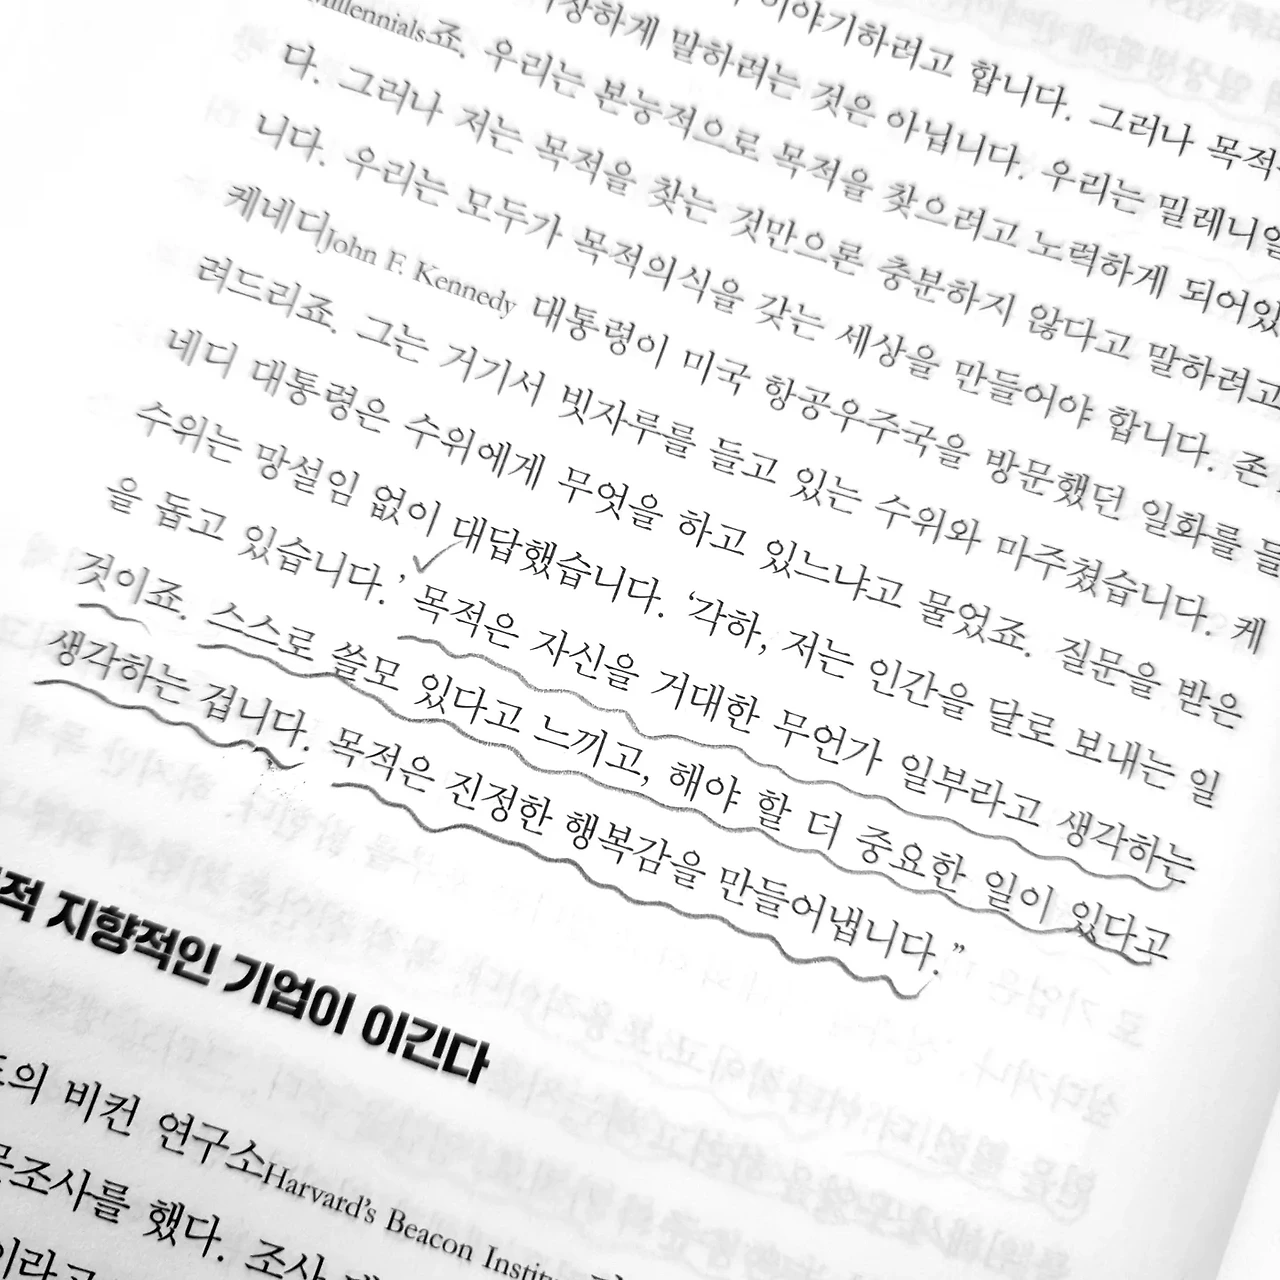 이야기하려고 합니다. 그러나 목적
말하려는 것은 아닙니다. 우리는 밀레니얼
Millennials죠. 우리는 본능적으로 목적을 찾으려고 노력하게 되어있
다. 그러나 저는 목적을 찾는 것만으론 충분하지 않다고 말하려고
니다. 우리는 모두가 목적의식을 갖는 세상을 만들어야 합니다. 존
케네디John F. Kennedy 대통령이 미국 항공우주국을 방문했던 일화를 들
려드리죠. 그는 거기서 빗자루를 들고 있는 수위와 마주쳤습니다. 케
네디 대통령은 수위에게 무엇을 하고 있느냐고 물었죠. 질문을 받은
수위는 망설임 없이 대답했습니다. ‘각하, 저는 인간을 달로 보내는 일
을 돕고 있습니다.’ 목적은 자신을 거대한 무언가 일부라고 생각하는
것이죠. 스스로 쓸모 있다고 느끼고, 해야 할 더 중요한 일이 있다고
생각하는 겁니다. 목적은 진정한 행복감을 만들어냅니다.”
적 지향적인 기업이 이긴다
의 비컨 연구소Harvard's Beacon Institu
조사를 했다. 조사
이라고